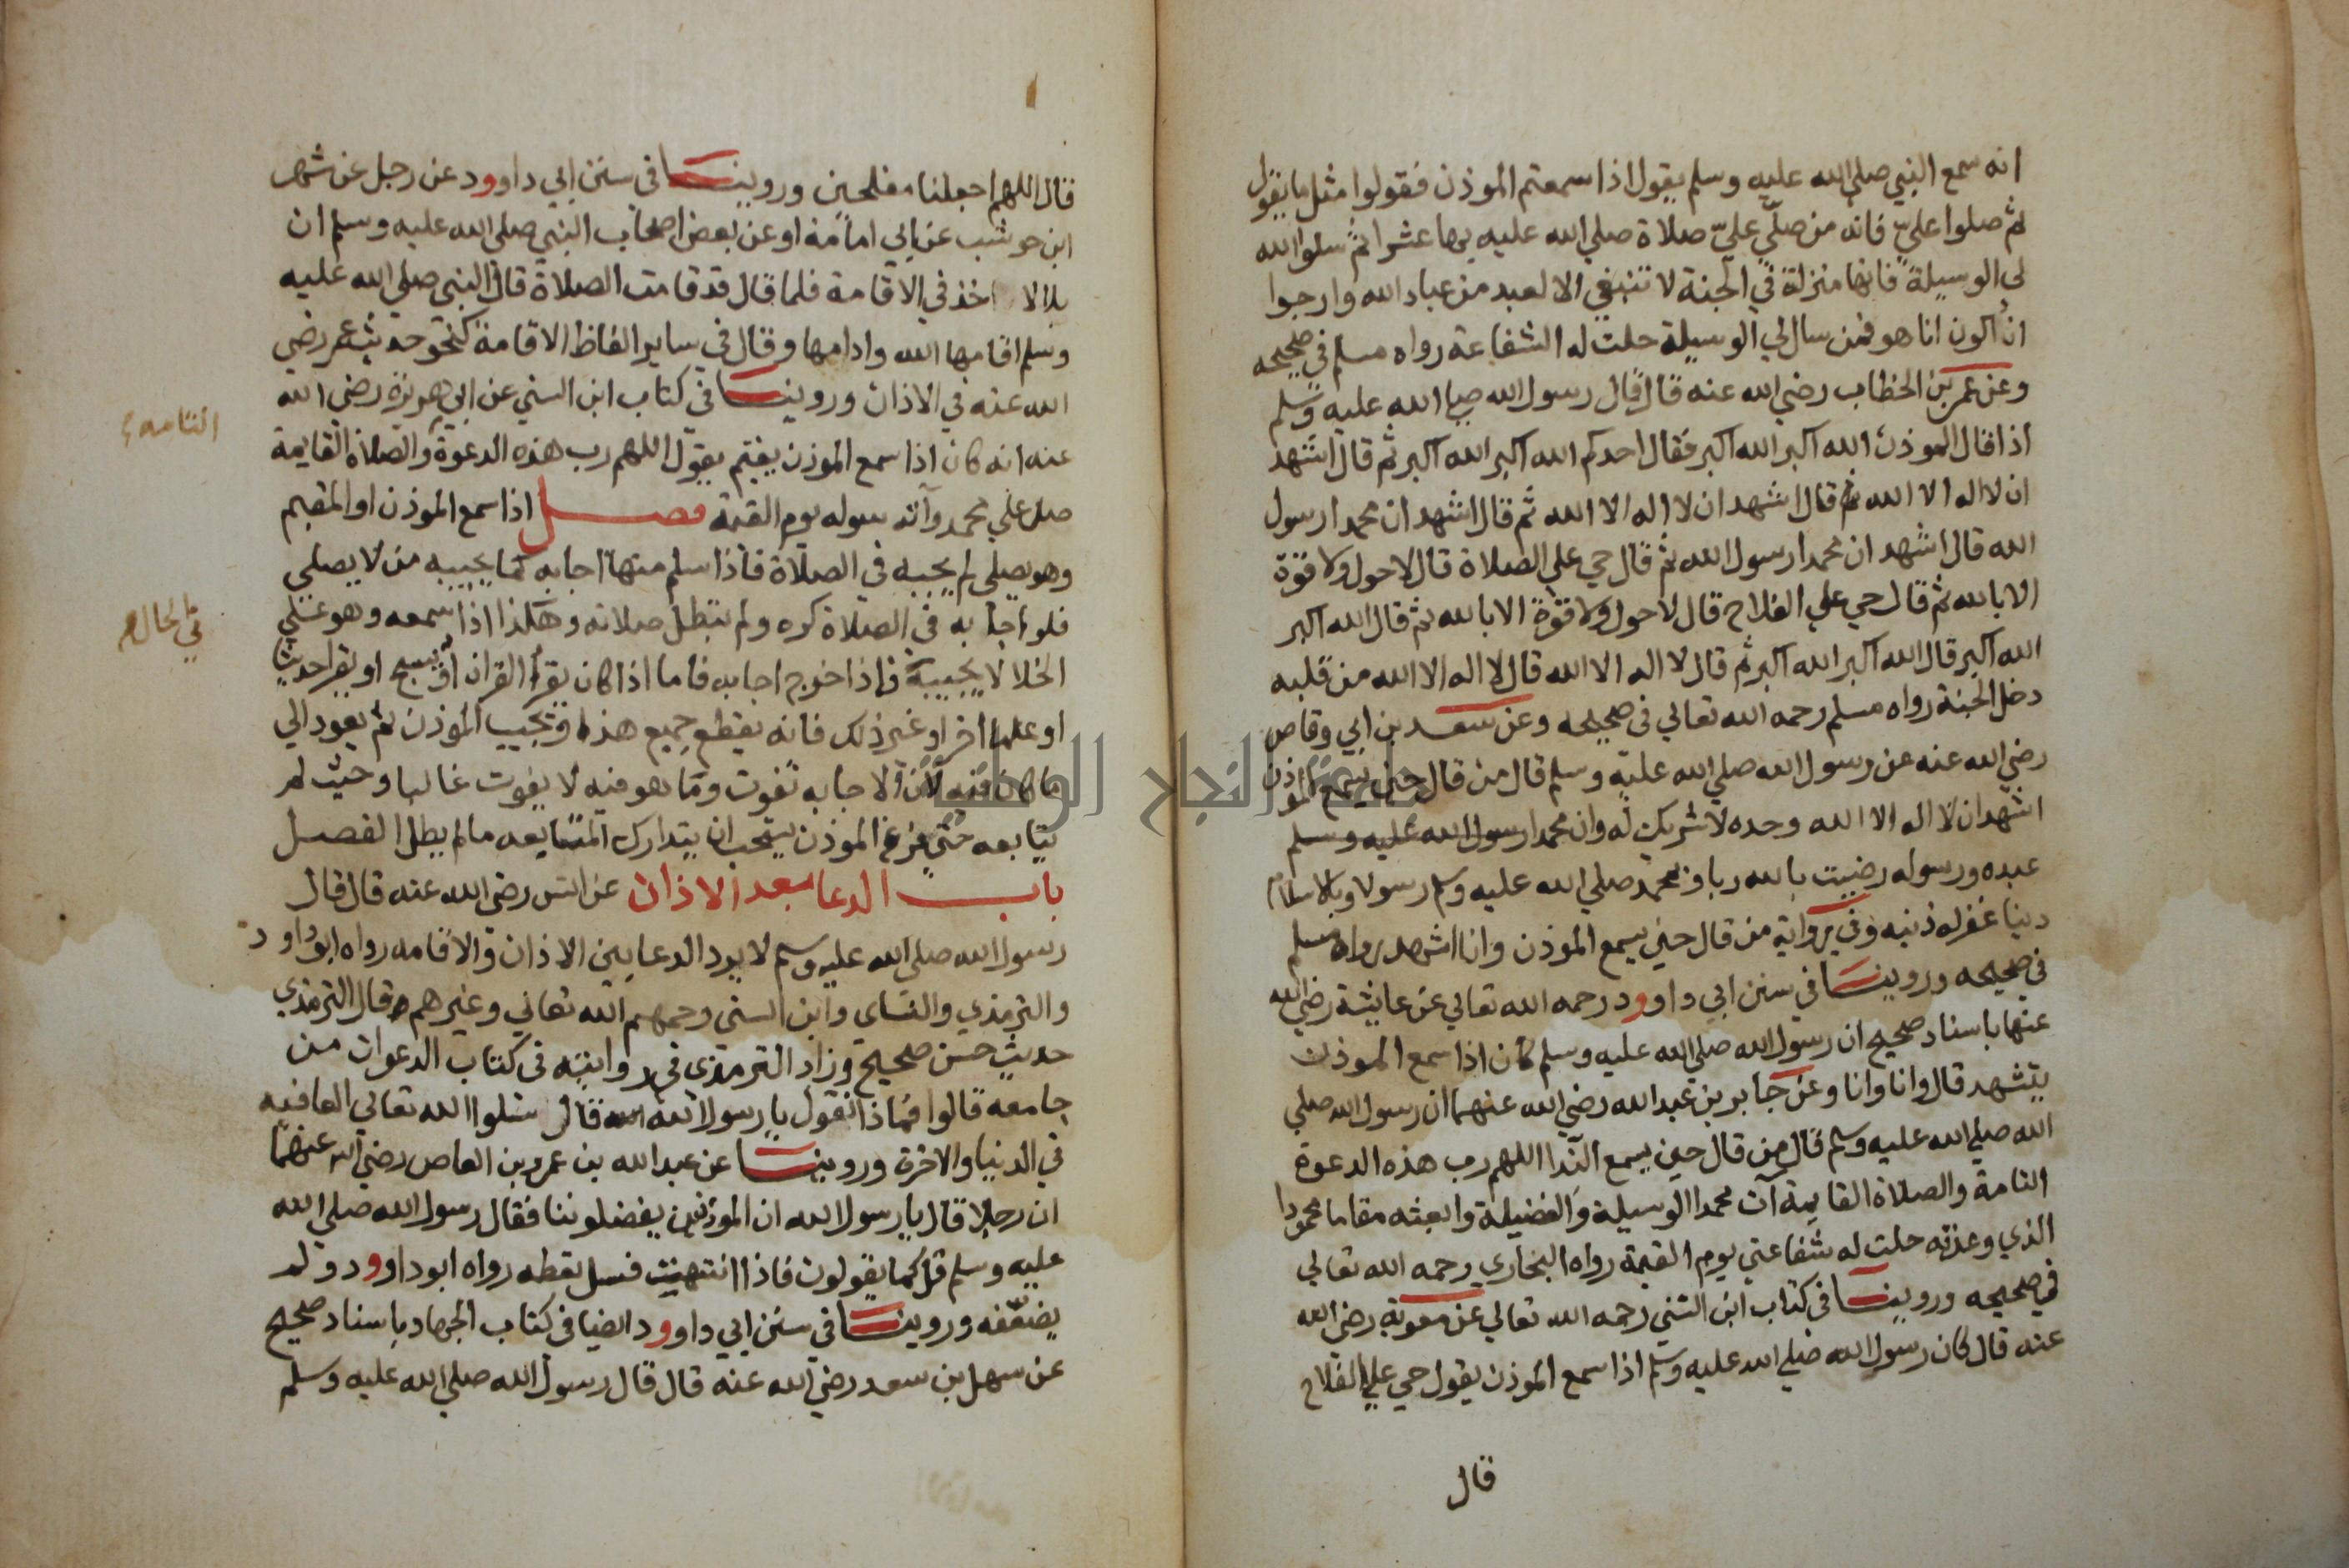 انه سمع النبي صلي الله عليه وسلم يقول اذا سمعتم الموذن فقولوا مثل ما يقول
ثم صلوا علي فانه من صلي علي صلاة صلي الله عليه بها عشرا ثم سلوا الله
لي الوسيلة فانها منزلة في الجنة لا تنبغي الا لعبد من عباد الله وارجوا
ان اكون انا هو فمن سال لي الوسيلة حلت له الشفاعة رواه مسلم في صحيحه
وعن عمر بن الخطاب رضي الله عنه قال قال رسول الله صلي الله عليه وسلم
اذا قال الموذن الله اكبر الله اكبر فقال احدكم الله اكبر الله اكبر ثم قال اشهد
ان لا اله الا الله ثم قال اشهد ان لا اله الا الله ثم قال اشهد ان محمدا رسول
الله قال اشهد ان محمدا رسول الله ثم قال حي علي الصلاة قال لا حول ولا قوة
الا بالله ثم قال حي علي الفلاح قال لا حول ولا قوة الا بالله ثم قال الله اكبر
الله اكبر قال الله اكبر الله اكبر ثم قال لا اله الا الله قال لا اله الا الله من قلبه
دخل الجنة رواه مسلم رحمه الله تعالي في صحيحه وعن سعد بن ابي وقاص
رضي الله عنه عن رسول الله صلي الله عليه وسلم قال من قال حين يسمع الموذن
اشهد ان لا اله الا الله وحده لا شريك له وان محمدا رسول الله عليه وسلم
عبده ورسوله رضيت بالله ربا وبمحمد صلي الله عليه وسلم رسولا وبالاسلام
دينا غفر له ذنبه وفي رواية من قال حين يسمع الموذن وانا اشهد رواه مسلم
في صحيحه وروينا في سنن ابي داوود رحمه الله تعالي عن عايشة رضي الله
عنها باسناد صحيح ان رسول الله صلي الله عليه وسلم كان اذا سمع الموذن
يتشهد قال وانا وانا وعن جابر بن عبد الله رضي الله عنهما ان رسول الله صلي
الله صلي الله عليه وسلم قال من قال حين يسمع الندا اللهم رب هذه الدعوة
التامة والصلاة القايمة آت محمدا الوسيلة والفضيلة وابعثه مقاما محمودا
الذي وعدته حلت له شفاعتي يوم القيمة رواه البخاري رحمه الله تعالي
في صحيحه وروينا في كتاب ابن السني رحمه الله تعالي عن معوية رضي الله
عنه قال كان رسول الله صلي الله عليه وسلم اذا سمع الموذن يقول حي علي الفلاح
قال
قال اللهم اجعلنا مفلحين وروينا في سنن ابي داوود عن رجل عن شهر
ابن حوشب عن ابي امامة او عن بعض اصحاب النبي صلي الله عليه وسلم ان
بلالا اخذ في الاقامة فلما قال قد قامت الصلاة قال النبي صلي الله عليه
وسلم اقامها الله وادامها وقال في ساير الفاظ الاقامة كنحو حديث عمر رضي
الله عنه في الاذان وروينا في كتاب ابن السني عن ابي هريرة رضي الله
عنه انه كان اذا سمع الموذن يقيم يقول اللهم رب هذه الدعوة والصلاة القايمة
التامه
صل علي محمد وآته سوله يوم القيمة فصل اذا سمع الموذن او المقيم
وهو يصلي لم يجبه في الصلاة فاذا سلم منها اجابه كما يجيبه من لا يصلي
فلو اجابه في الصلاة كره ولم تبطل صلاته وهكذا اذا سمعه وهو علي
في الحال
الخلا لا يجيبه فاذا خرج اجابه فاما اذا كان يقرأ القران او يسبح او يقرا حديثا
او علما اخر او غير ذلك فانه يقطع جميع هذا ويجيب الموذن ثم يعود الي
ما كان فيه لان الاجابه تفوت وما هو فيه لا يفوت غالبا وحيث لم
يتابعه حتي فرغ الموذن يستحب ان يتدارك المتابعه ما لم يطل الفصل
باب الدعا بعد الاذان عن انس رضي الله عنه قال قال
رسول الله صلي الله عليه وسلم لا يرد الدعا بين الاذان والاقامه رواه ابو داود
والترمذي والنساي وابن السني رحمهم الله تعالي وغيرهم قال الترمذي
حديث حسن صحيح وزاد الترمذي في روايته في كتاب الدعوات من
جامعه قالوا فماذا نقول يا رسول الله قال سلوا الله تعالي العافيه
في الدنيا والاخرة وروينا عن عبد الله بن عمرو بن العاص رضي الله عنهما
ان رجلا قال يا رسول الله ان الموذنين يفضلوننا فقال رسول الله صلي الله
عليه وسلم قل كما يقولون فاذا انتهيت فسل تعطه رواه ابو داوود ولم
يضعفه وروينا في سنن ابي داوود ايضا في كتاب الجهاد باسناد صحيح
عن سهل بن سعد رضي الله عنه قال قال رسول الله صلي الله عليه وسلم
جامعة النجاح الوطنية